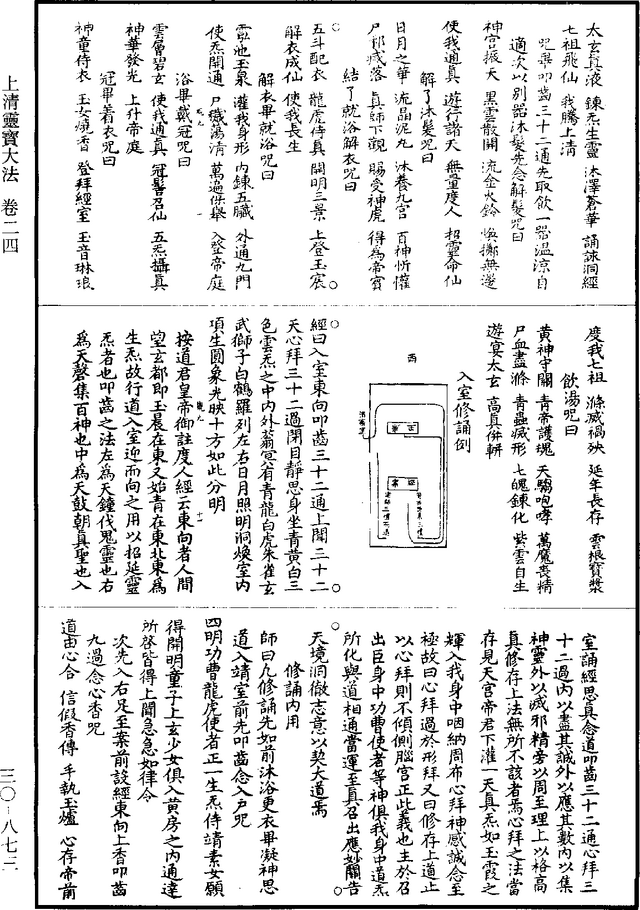 上清靈寶大法　卷二四
三〇-八七二
太玄真液　鍊炁生靈　沐澤蒼華　誦詠洞經
七祖飛仙　我騰上清
咒畢叩齒三十二通先取飲一器溫涼自
適次以別器沐髮先念解髮咒曰
神宮振天　黑雲散開　流金火鈴　煥擲無邊
使我通真　遊行諸天　無量度人　招靈命仙
解了沐髮咒曰
日月之華　流晶泥丸　沐養九宮　百神忻懽
尸邪滅落　真師下觀　賜受神虎　得為帝賓
結了就浴解衣咒曰
五斗配衣　龍虎侍真　開明三景　上登玉宸
解衣成仙　使我長生
解衣畢就浴咒曰
靈池玉泉　灌我身形　內鍊五臟　外通九門
使炁開通　尸穢蕩清　萬過俱舉　入登帝庭
浴畢戴冠咒曰
雲層碧玄　使我通真　冠髻召仙　五炁攝真
神華發光　上升帝庭
冠畢着衣咒曰
神童侍衣　玉女燒香　登拜經室　玉音琳琅
度我七祖　滌滅禍殃　延年長存　雲根寶漿
飲湯咒曰
黃神守關　青帝護魂　天騶咆哮　萬魔喪精
尸血盡滌　青蟲滅形　七魄鍊化　紫雲自生
遊宴太玄　高真併軿
入室修誦例
西
經曰入室東向叩齒三十二通上聞三十二
天心拜三十二過閉目靜思身坐青黃白三
色雲炁之中內外蓊冥有青龍白虎朱雀玄
武獅子白鶴羅列左右日月照明洞煥室內
項生圓象光映十方如此分明
按道君皇帝御註度人經云東向者人間
望玄都即玉晨在東又始青在東北東為
生炁故行道入室迎而向之用以招延靈
炁者也叩齒之法左為天鐘伐鬼靈也右
為天磬集百神也中為天鼓朝真聖也入
室誦經思真念道叩齒三十二通心拜三
十二過內以盡其誠外以應其數內以集
神靈外以滅邪精旁以周至理上以格高
真修存上法無所不該者焉心拜之法當
存見天宮帝君下灌一天真炁如玉霞之
輝入我身中咽納周布心拜神感誠念至
極故曰心拜過於形拜又曰修存上道止
以心拜則不傾側腦宮正此義也主於召
出臣身中功曹使者等神俱我身中道炁
所化與道相通當運至真召出應妙關告
天境洞徹志意以契大道焉
修誦內用
師曰凡修誦先如前沐浴更衣畢凝神思
道入靖室前先叩齒念入戶咒
四明功曹龍虎使者正一生炁侍靖素女願
得開明童子上玄少女俱入黃房之內通達
所啓皆得上聞急急如律令
次先入右足至案前設經東向上香叩齒
九過念心香咒
道由心合　信假香傳　手執玉爐　心存帝前